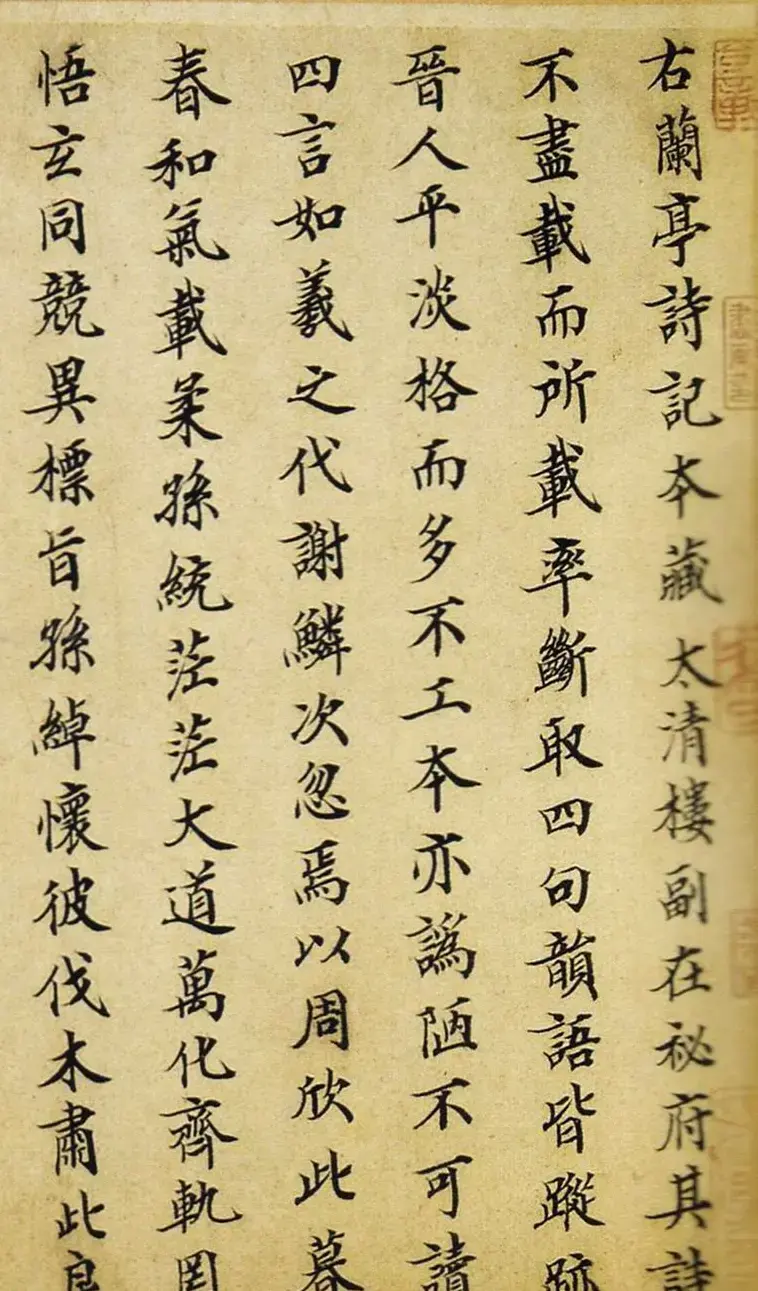 右蘭亭詩記本藏太清樓副在祕府其詩
不盡載而所載率斷取四句韻語皆蹤跡
晉人平淡格而多不工本亦譌陋不可讀
四言如羲之代謝鱗次忽焉以周欣此暮
春和氣載柔孫統茫茫大道萬化齊軌罔
悟玄同競異標旨孫綽懷彼伐木肅此良